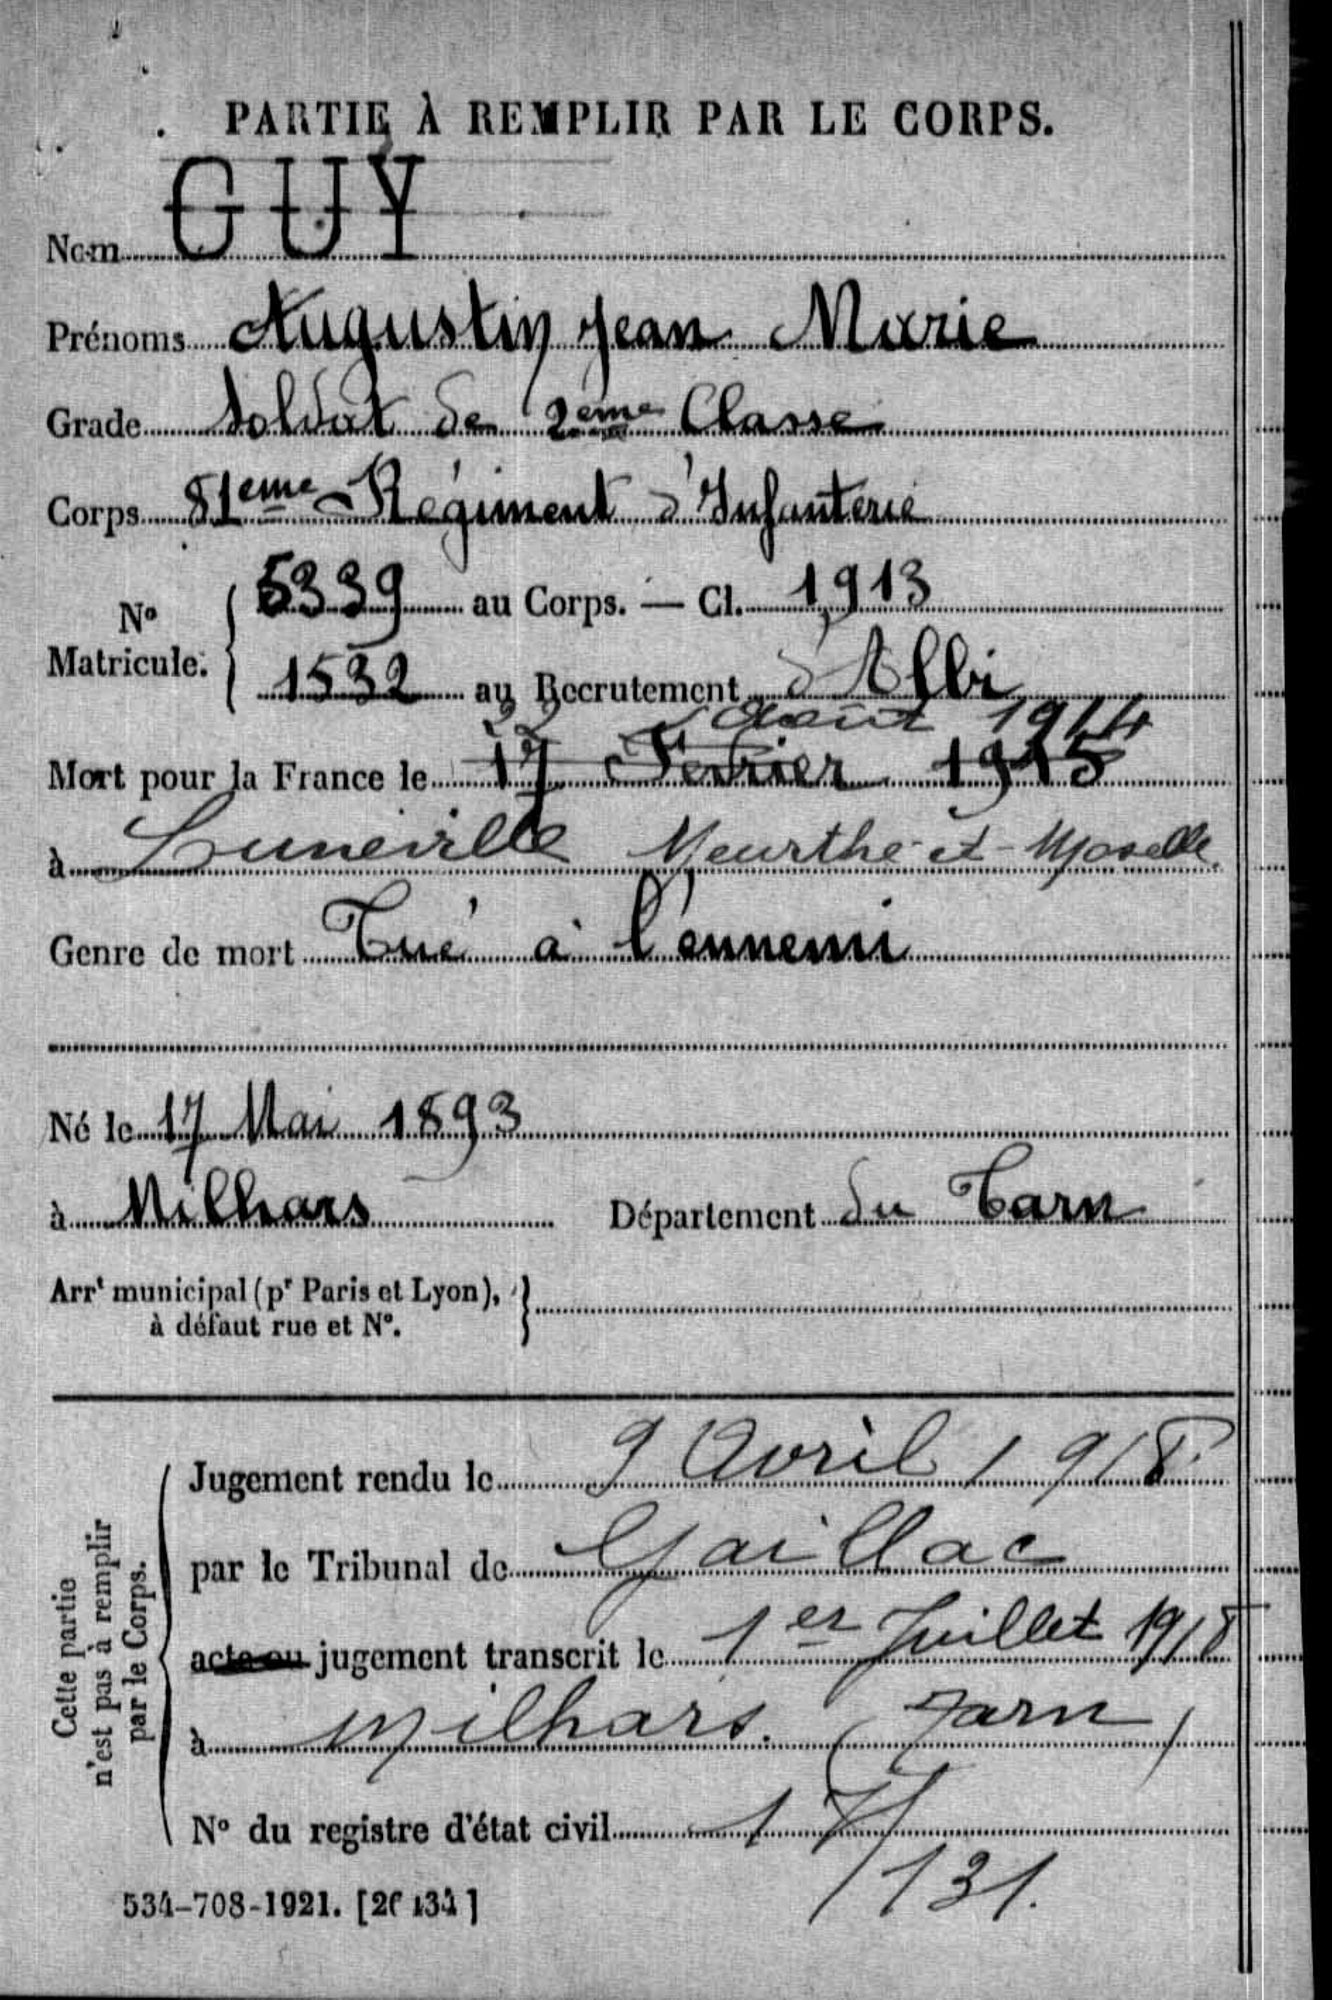 PARTIE À REMPLIR PAR LE CORPS.
Nom GUY
Prénoms Augustin Jean Marie
Grade Soldat de 2eme Classe
Corps 81eme Régiment d'Infanterie
No Matricule. 5339 au Corps. — Cl. 1913
1532 au Recrutement d'Albi
22 Août 1914
Mort pour la France le 17 Fevrier 1915
à Luneville Meurthe-et-Moselle
Genre de mort Tué à l'ennemi
Né le 17 Mai 1893
à Milhars Département du Tarn
Arrt municipal (pr Paris et Lyon),
à défaut rue et No.
Cette partie
n'est pas à remplir
par le Corps.
Jugement rendu le 9 Avril 1918
par le Tribunal de Gaillac
acte ou jugement transcrit le 1er Juillet 1918
à Milhars. (Tarn)
No du registre d'état civil 17/
/131.
534-708-1921.